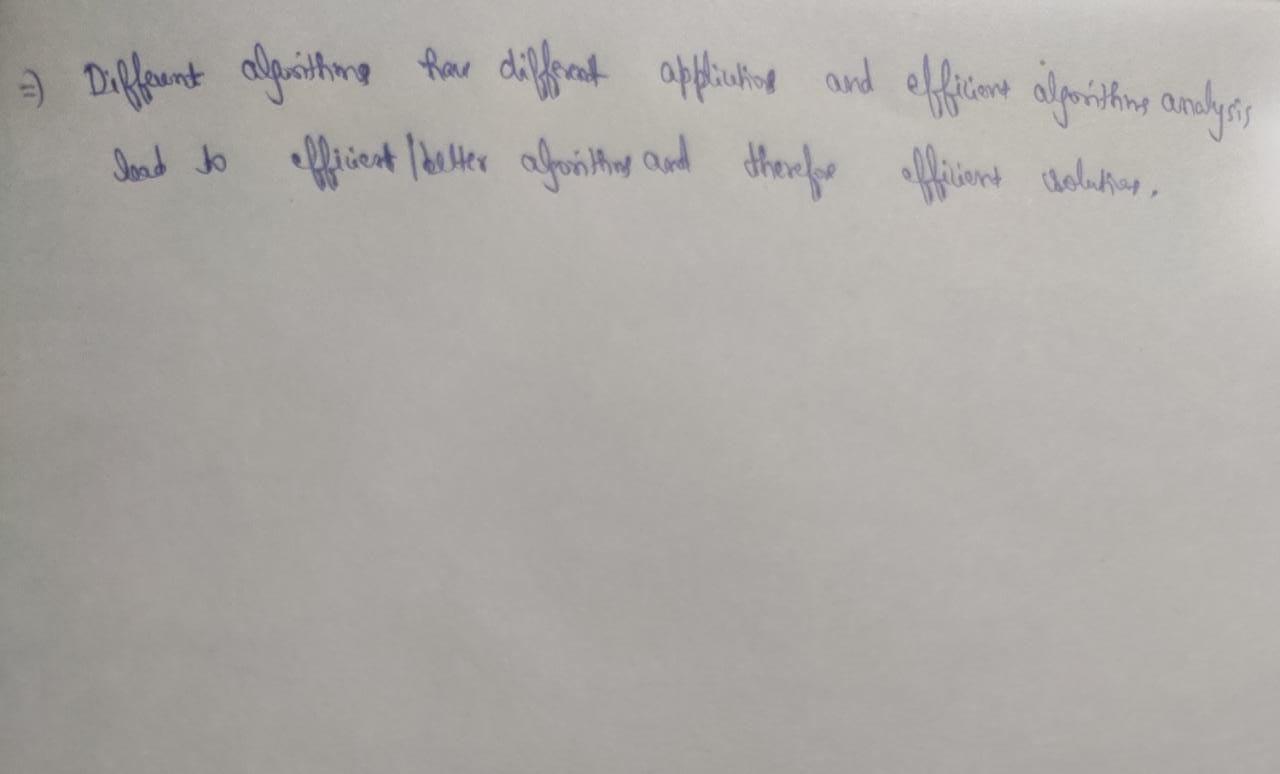 ⇒ Different algorithms have different applications and efficient algorithms analysis
lead to efficient/better algorithms and therefore efficient solutions.